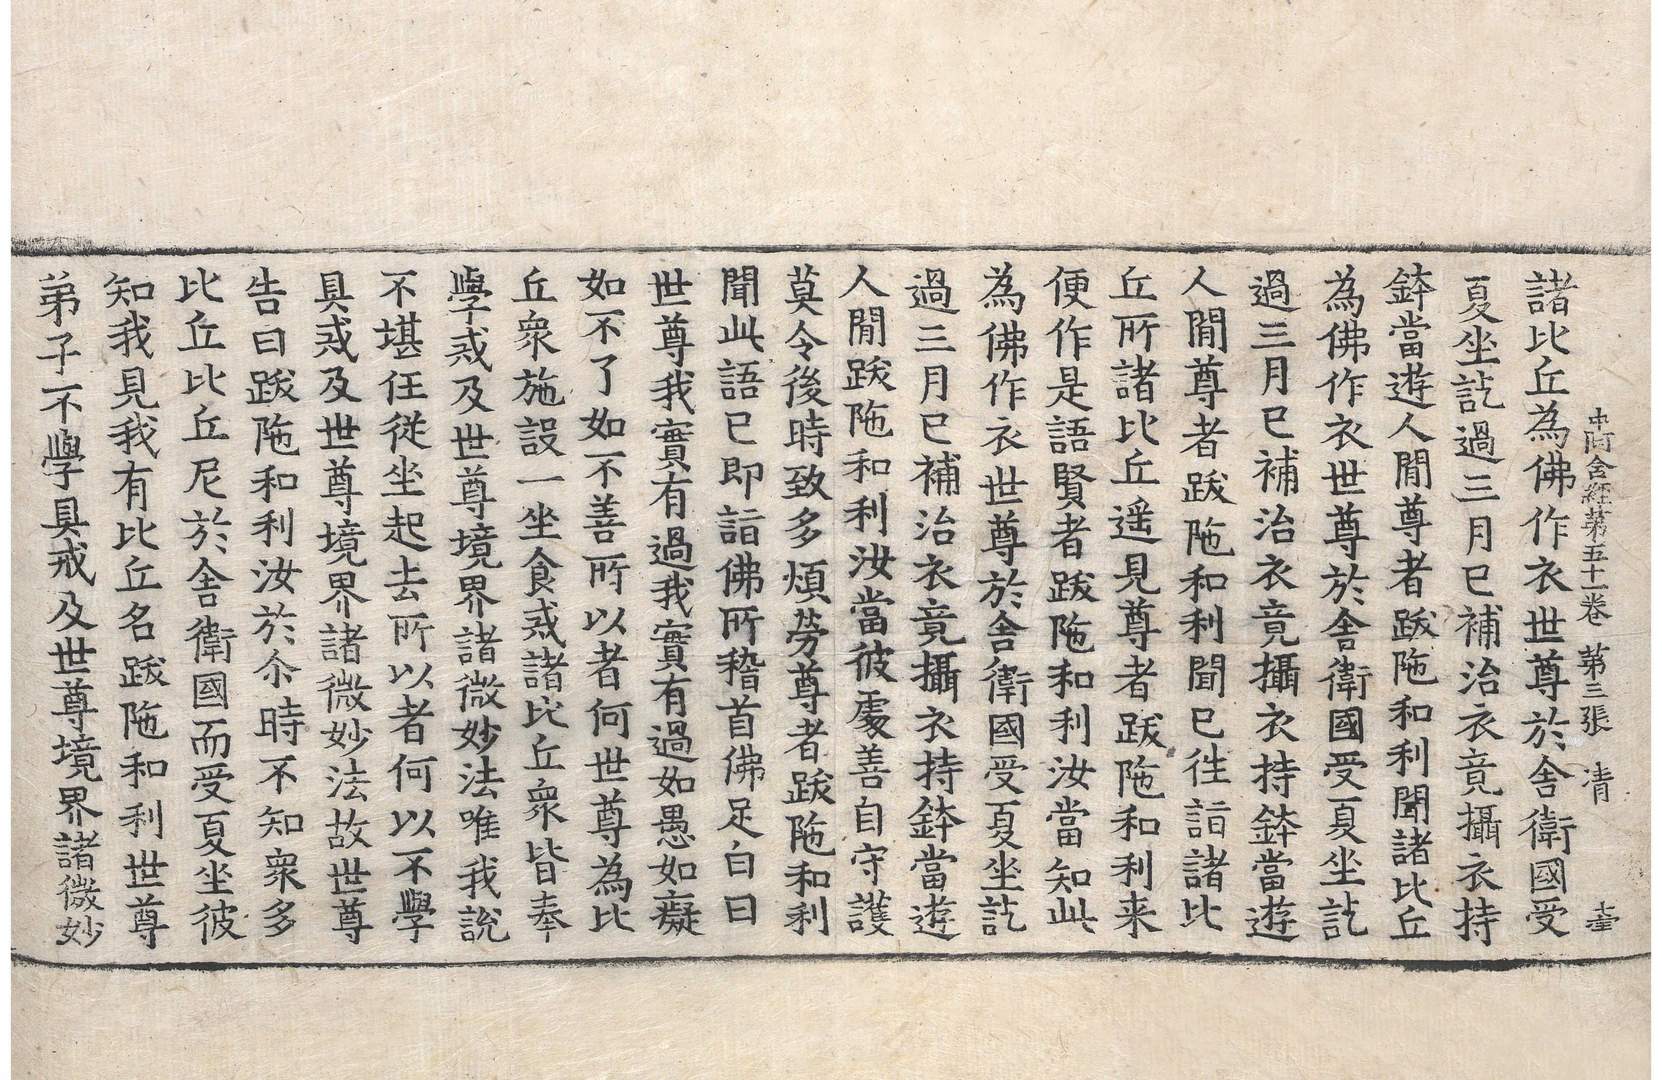 中阿含經第五十一卷　第三張　清
諸比丘為佛作衣世尊於舍衛國受
夏坐訖過三月已補治衣竟攝衣持
鉢當遊人閒尊者跋陁和利聞諸比丘
為佛作衣世尊於舍衛國受夏坐訖
過三月已補治衣竟攝衣持鉢當遊
人閒尊者跋陁和利聞已往詣諸比
丘所諸比丘遥見尊者跋陁和利来
便作是語賢者跋陁和利汝當知此
為佛作衣世尊於舍衛國受夏坐訖
過三月已補治衣竟攝衣持鉢當遊
人閒跋陁和利汝當彼處善自守護
莫令後時致多煩勞尊者跋陁和利
聞此語已即詣佛所稽首佛足白曰
世尊我實有過我實有過如愚如癡
如不了如不善所以者何世尊為比
丘衆施設一坐食戒諸比丘衆皆奉
學戒及世尊境界諸微妙法唯我說
不堪任從坐起去所以者何以不學
具戒及世尊境界諸微妙法故世尊
告曰跋陁和利汝於尒時不知衆多
比丘比丘尼於舍衛國而受夏坐彼
知我見我有比丘名跋陁和利世尊
弟子不學具戒及世尊境界諸微妙